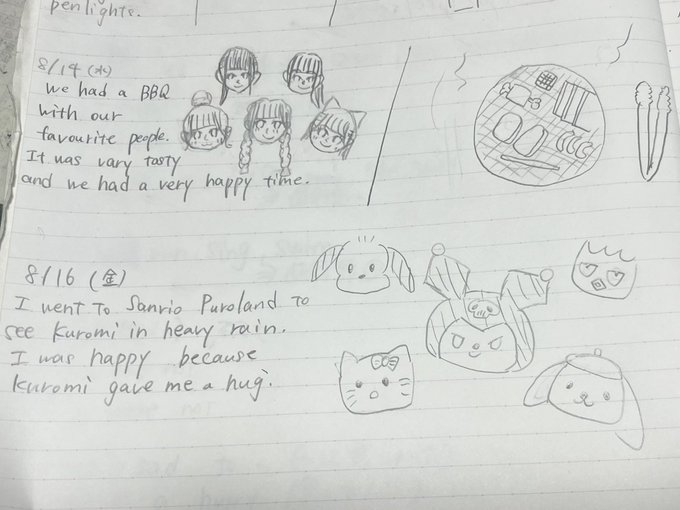 penlights.
8/14 (水)
we had a BBQ
with our
favourite people.
It was vary tasty
and we had a very happy time.
8/16 (金)
I went to Sanrio Puroland to
see Kuromi in heavy rain.
I was happy because
Kuromi gave me a hug.